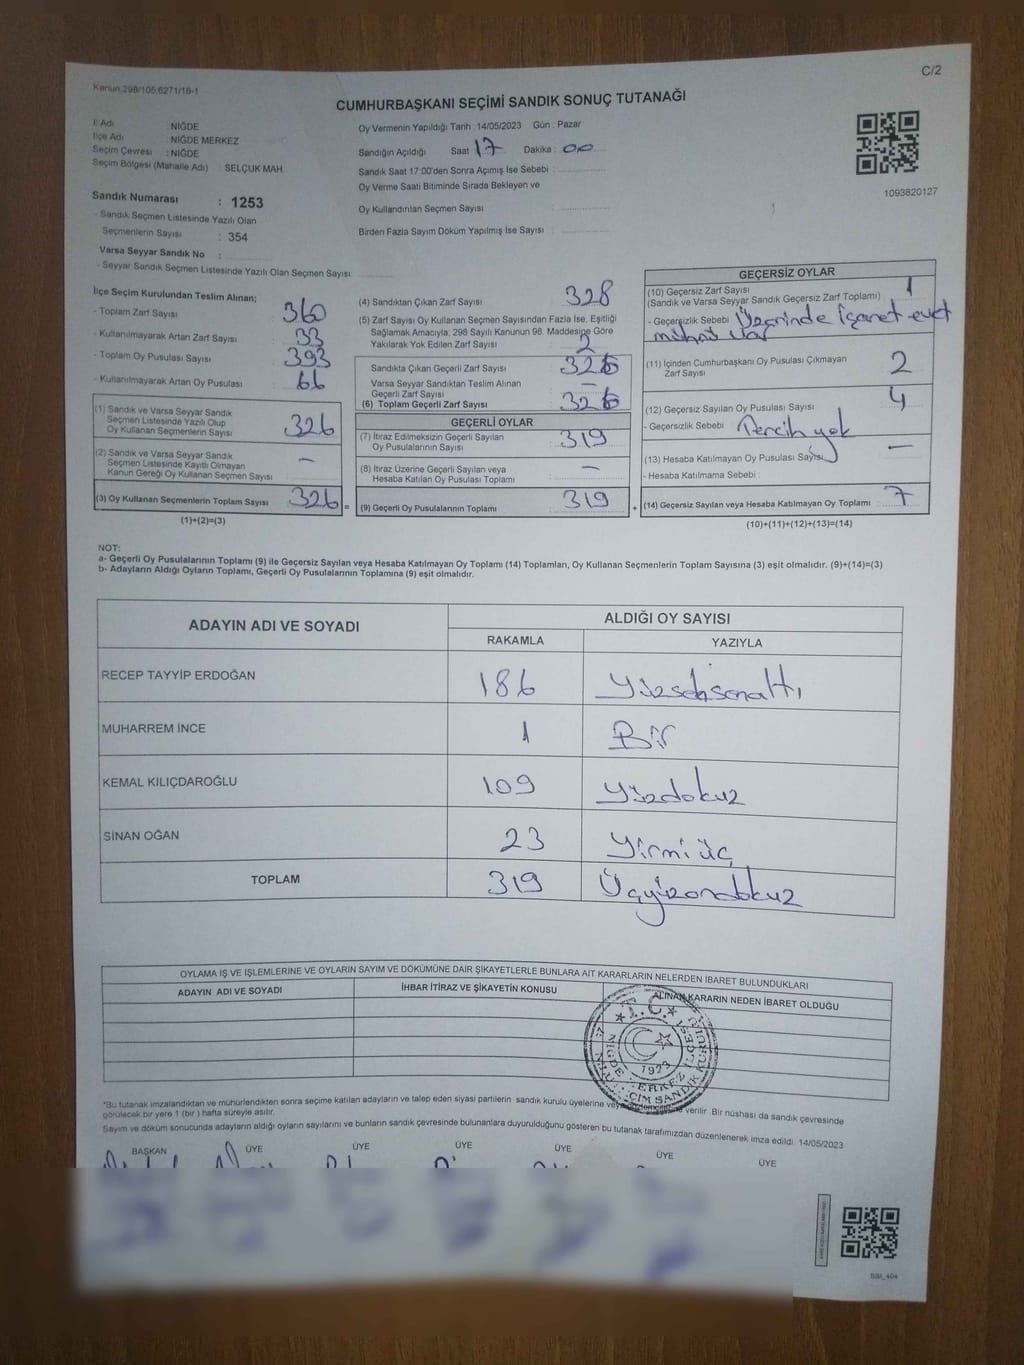 C/2
Kanun:298/105;6271/18-1
CUMHURBAŞKANI SEÇİMİ SANDIK SONUÇ TUTANAĞI
İl Adı : NİĞDE
İlçe Adı : NİĞDE MERKEZ
Seçim Çevresi : NİĞDE
Seçim Bölgesi (Mahalle Adı) SELÇUK MAH
Sandık Numarası : 1253
- Sandık Seçmen Listesinde Yazılı Olan
Seçmenlerin Sayısı : 354
Varsa Seyyar Sandık No :
- Seyyar Sandık Seçmen Listesinde Yazılı Olan Seçmen Sayısı:
Oy Vermenin Yapıldığı Tarih :14/05/2023 Gün : Pazar
Sandığın Açıldığı Saat 17 Dakika : 00
Sandık Saat 17:00'den Sonra Açımış İse Sebebi :
Oy Verme Saati Bitiminde Sırada Bekleyen ve
Oy Kullandırılan Seçmen Sayısı
Birden Fazla Sayım Döküm Yapılmış İse Sayısı :
1093820127
İlçe Seçim Kurulundan Teslim Alınan;
- Toplam Zarf Sayısı : 360
- Kullanılmayarak Artan Zarf Sayısı : 33
- Toplam Oy Pusulası Sayısı : 393
- Kullanılmayarak Artan Oy Pusulası : 66
(1) Sandık ve Varsa Seyyar Sandık
Seçmen Listesinde Yazılı Olup
Oy Kullanan Seçmenlerin Sayısı : 326
(2) Sandık ve Varsa Seyyar Sandık
Seçmen Listesinde Kayıtlı Olmayan
Kanun Gereği Oy Kullanan Seçmen Sayısı : –
(3) Oy Kullanan Seçmenlerin Toplam Sayısı : 326 =
(1)+(2)=(3)
(4) Sandıktan Çıkan Zarf Sayısı : 328
(5) Zarf Sayısı Oy Kullanan Seçmen Sayısından Fazla İse, Eşitliği
Sağlamak Amacıyla, 298 Sayılı Kanunun 98. Maddesine Göre
Yakılarak Yok Edilen Zarf Sayısı : 2
Sandıkta Çıkan Geçerli Zarf Sayısı : 326
Varsa Seyyar Sandıktan Teslim Alınan
Geçerli Zarf Sayısı : –
(6) Toplam Geçerli Zarf Sayısı : 326
GEÇERLİ OYLAR
(7) İtiraz Edilmeksizin Geçerli Sayılan
Oy Pusulalarının Sayısı : 319
(8) İtiraz Üzerine Geçerli Sayılan veya
Hesaba Katılan Oy Pusulası Toplamı : –
(9) Geçerli Oy Pusulalarının Toplamı : 319 +
GEÇERSİZ OYLAR
(10) Geçersiz Zarf Sayısı
(Sandık ve Varsa Seyyar Sandık Geçersiz Zarf Toplamı) : 1
- Geçersizlik Sebebi : Üzerinde işaret evet
mühürü var
(11) İçinden Cumhurbaşkanı Oy Pusulası Çıkmayan
Zarf Sayısı 2
(12) Geçersiz Sayılan Oy Pusulası Sayısı : 4
- Geçersizlik Sebebi : Tercih yok
(13) Hesaba Katılmayan Oy Pusulası Sayısı : –
- Hesaba Katılmama Sebebi :
(14) Geçersiz Sayılan veya Hesaba Katılmayan Oy Toplamı : 7
(10)+(11)+(12)+(13)=(14)
NOT:
a- Geçerli Oy Pusulalarının Toplamı (9) ile Geçersiz Sayılan veya Hesaba Katılmayan Oy Toplamı (14) Toplamları, Oy Kullanan Seçmenlerin Toplam Sayısına (3) eşit olmalıdır. (9)+(14)=(3)
b- Adayların Aldığı Oyların Toplamı, Geçerli Oy Pusulalarının Toplamına (9) eşit olmalıdır.
ADAYIN ADI VE SOYADI ALDIĞI OY SAYISI
RAKAMLA YAZIYLA
RECEP TAYYİP ERDOĞAN 186 Yüzseksenaltı
MUHARREM İNCE 1 Bir
KEMAL KILIÇDAROĞLU 109 Yüzdokuz
SİNAN OĞAN 23 Yirmiüç
TOPLAM 319 Üçyüzondokuz
OYLAMA İŞ VE İŞLEMLERİNE VE OYLARIN SAYIM VE DÖKÜMÜNE DAİR ŞİKAYETLERLE BUNLARA AİT KARARLARIN NELERDEN İBARET BULUNDUKLARI
ADAYIN ADI VE SOYADI İHBAR İTİRAZ VE ŞİKAYETİN KONUSU ALINAN KARARIN NEDEN İBARET OLDUĞU
T.C.
1923
*Bu tutanak imzalandıktan ve mühürlendikten sonra seçime katılan adayların ve talep eden siyasi partilerin sandık kurulu üyelerine veya verilir .Bir nüshası da sandık çevresinde
görülecek bir yere 1 (bir ) hafta süreyle asılır.
Sayım ve döküm sonucunda adayların aldığı oyların sayılarını ve bunların sandık çevresinde bulunanlara duyurulduğunu gösteren bu tutanak tarafımızdan düzenlenerek imza edildi. 14/05/2023
BAŞKAN ÜYE ÜYE ÜYE ÜYE ÜYE ÜYE